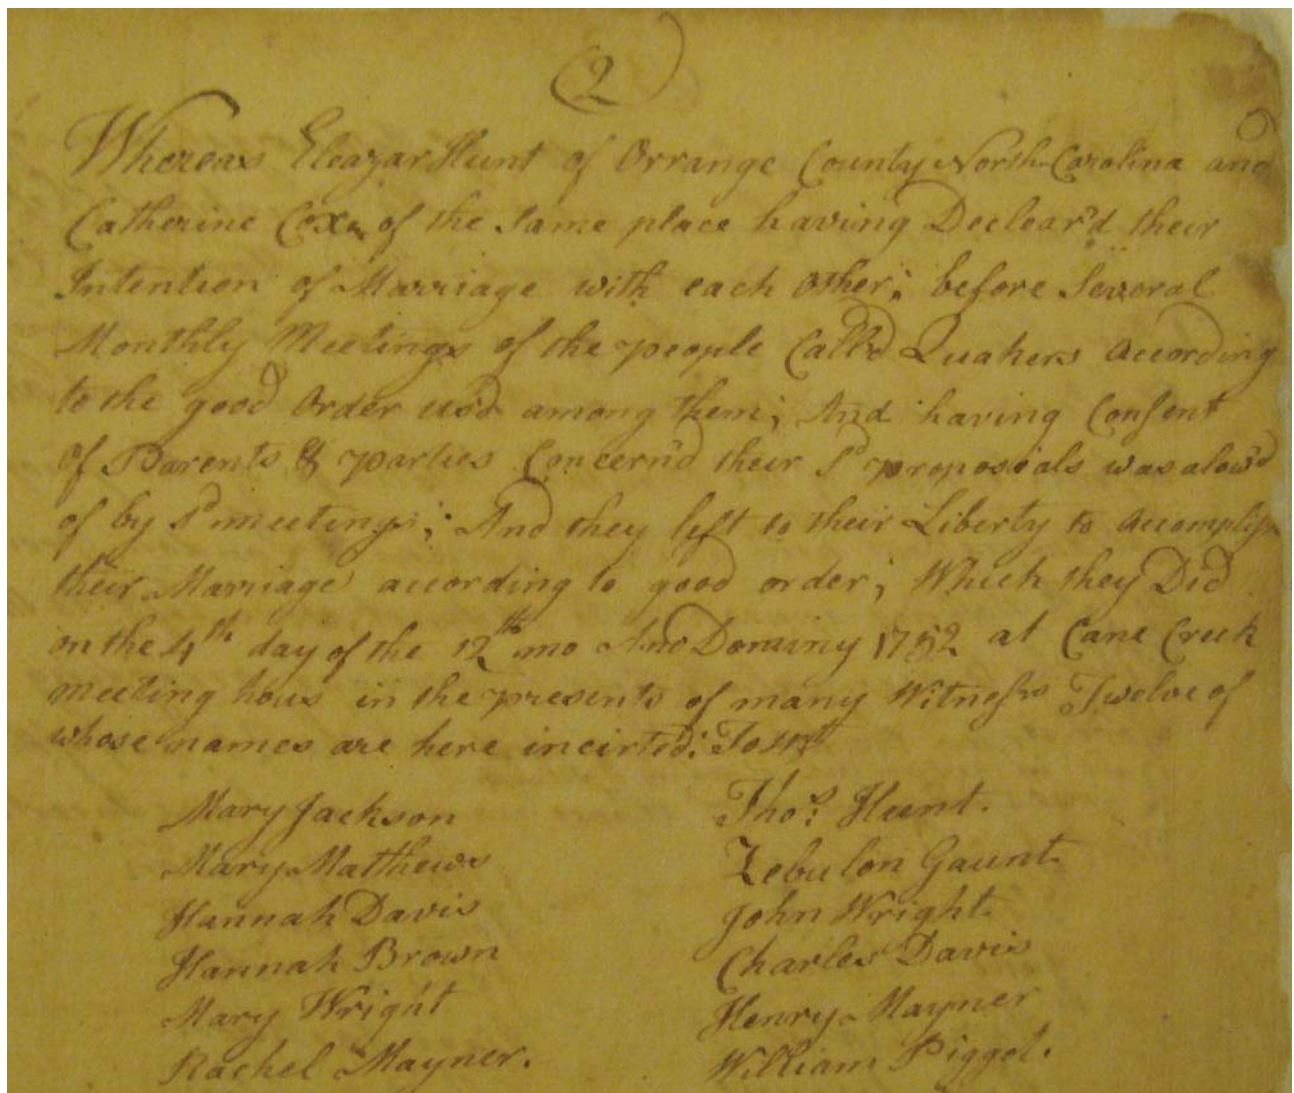 2
Whereas Eleazar Hunt of Orrange County North Carolina and
Catherine Cox of the Same place having Declear'd their
Intention of Marriage with each Other; before Several
Monthly Meetings of the people Call'd Quakers According
to the good Order us'd among them; And having Consent
Of Parents & parties Concern'd their Sd proposeals was alow'd
of by Sd meetings; And they left to their Liberty to Accomplish
their Marriage according to good order; Which they Did
on the 4th day of the 12th mo Ano Dominy 1752 at Cane Creek
meeting hous in the presents of many Witness Twelve of
whose names are here incirted:
Mary Jackson
Mary Mathews
Hannah Davis
Hannah Brown
Mary Wright
Rachel Mayner.
Thos: Hunt.
Zebulon Gaunt.
John Wright.
Charles Davis
Henry Mayner
William Piggot.